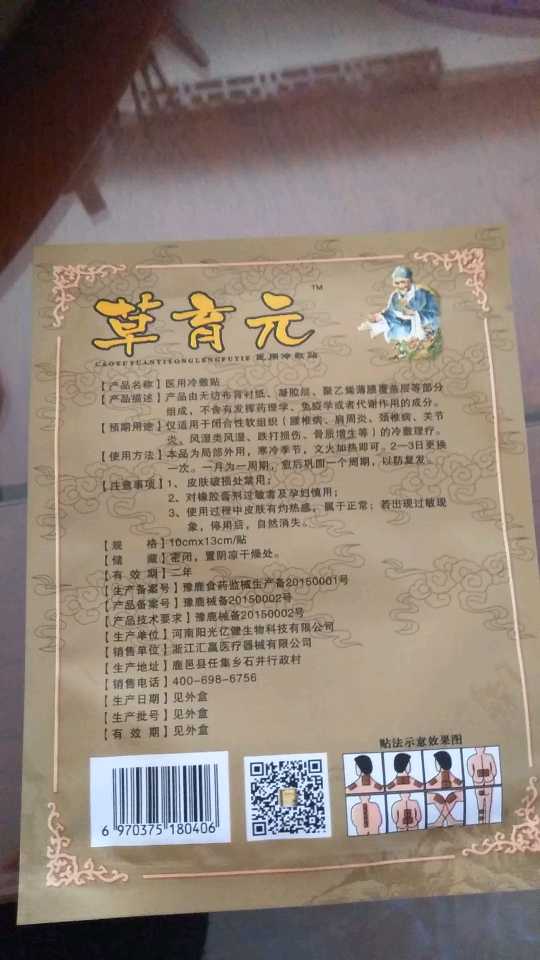 草育元 TM
CAOYUYUANYIYONGLENGFUTIE 医用冷敷贴
【产品名称】医用冷敷贴
【产品描述】产品由无纺布背衬纸、凝胶层、聚乙烯薄膜覆盖层等部分
组成，不含有发挥药理学、免疫学或者代谢作用的成分。
【预期用途】仅适用于闭合性软组织（腰椎病、肩周炎、颈椎病、关节
炎、风湿类风湿、跌打损伤、骨质增生等）的冷敷理疗。
【使用方法】本品为局部外用，寒冷季节，文火加热即可。2—3日更换
一次。一月为一周期，愈后巩固一个周期，以防复发。
【注意事项】1、皮肤破损处禁用；
2、对橡胶膏剂过敏者及孕妇慎用；
3、使用过程中皮肤有灼热感，属于正常；若出现过敏现
象，停用后，自然消失。
【规　　格】10cmx13cm/贴
【储　　藏】密闭，置阴凉干燥处。
【有 效 期】二年
【生产备案号】豫鹿食药监械生产备20150001号
【产品备案号】豫鹿械备20150002号
【产品技术要求】豫鹿械备20150002号
【生产单位】河南阳光亿健生物科技有限公司
【销售单位】浙江汇赢医疗器械有限公司
【生产地址】鹿邑县任集乡石井行政村
【销售电话】400-698-6756
【生产日期】见外盒
【生产批号】见外盒
【有 效 期】见外盒
贴法示意效果图
6 970375 180406